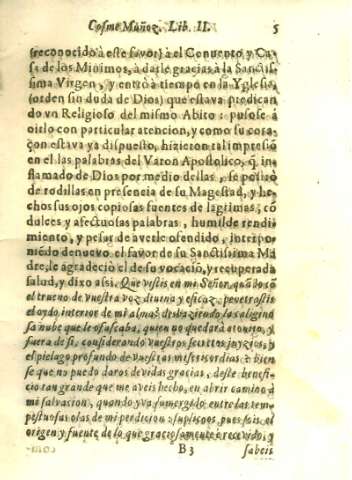 Cosme Muñoz. Lib. II. 5
(reconocido à este favor) à el Conuento, y Ca-
sa de los Minimos, à darle gracias à la Sanctis-
sima Virgen, y entrò à tiempo en la Yglesia,
(orden sin duda de Dios) que estava predican-
do vn Religioso del mismo Abito: pusose à
oirlo con particular atencion, y como su cora-
çon estava ya dispuesto, hizieron tal impresiõ
en el las palabras del Varon Apostolico, q̃ in-
flamado de Dios por medio dellas, se postrò
de rodillas en presencia de su Magestad, y he-
chos sus ojos copiosas fuentes de lagrimas, cõ
dulces y afectuosas palabras, humilde rendi-
miento, y pesar de averle ofendido, interpo-
niẽdo de nuevo el favor de su Sanctissima Ma
dre, le agradeciò el de su vocaciõ, y recuperada
salud, y dixo assi. Que vistis en mi Señor, quãdo cõ
el trueno de vuestra voz diuina y eficaz, penetrastis
el oydo interior de mi alma? desbaziendo la caligino
sa nube que le ofuscaba, quien no quedarà atonito, y
fuera de si, considerando vuestros secretos juyzios, y
el pielago profundo de vuestras misericordias? bien
se que no puedo daros devidas gracias, deste benefi-
cio tan grande que me aveis hecho, en abrir camino à
mi salvacion, quando yva sumergido entre las tem-
pestuosas olas de mi perdicion: suplicoos, pues sois el
origen y fuente de lo que graciosamente è recevido, y
B 3 sabeis